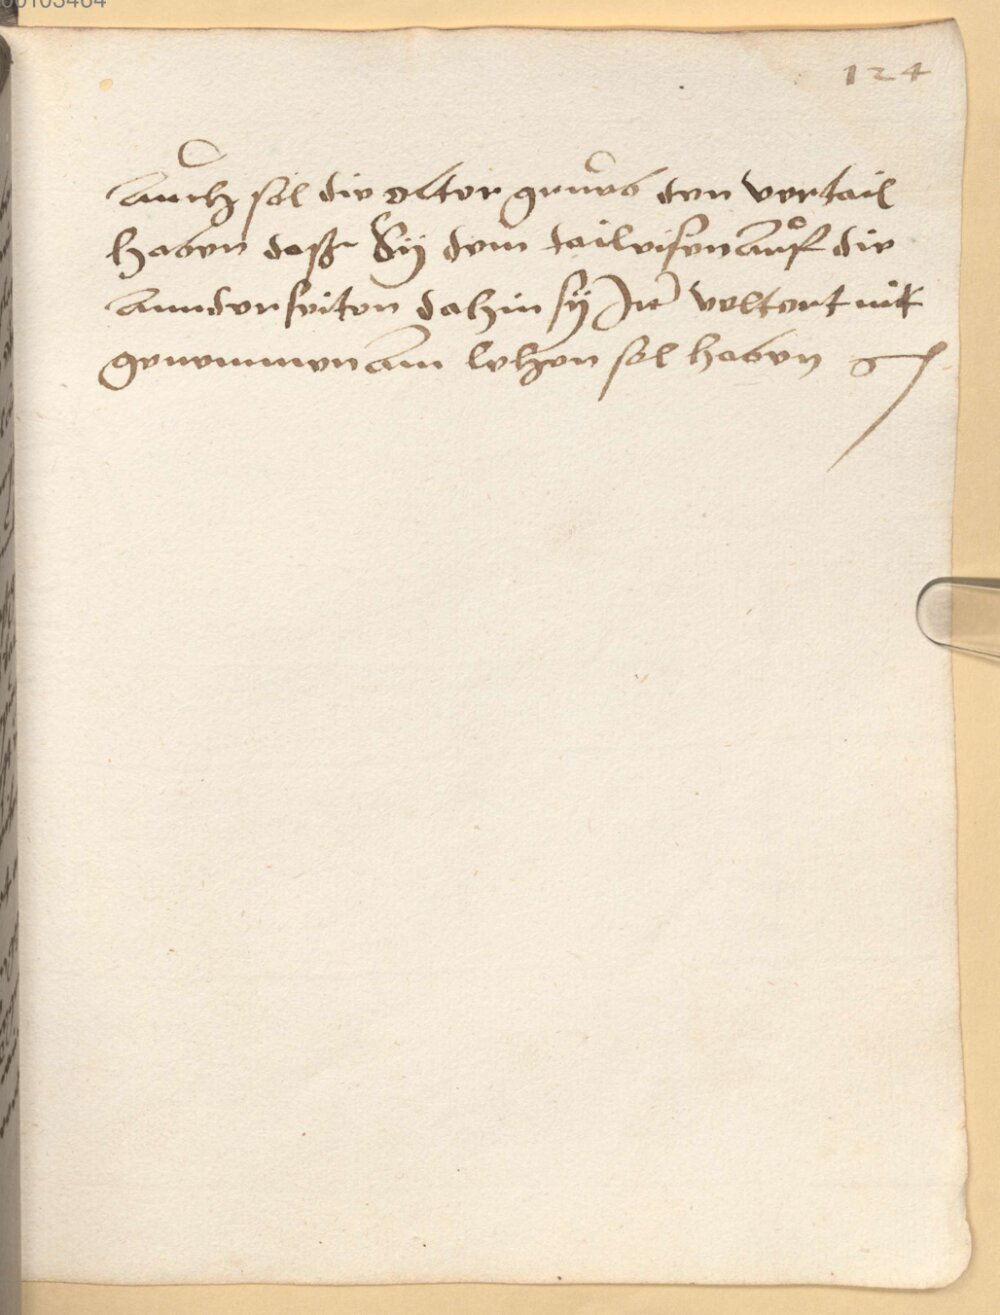 00103464
124
Auch sol die elter grueb den vortail
haben daß Sy dem tail eisen auf die
annder seiten dahin sy Ir veltort nit
genommen am lehen sol haben